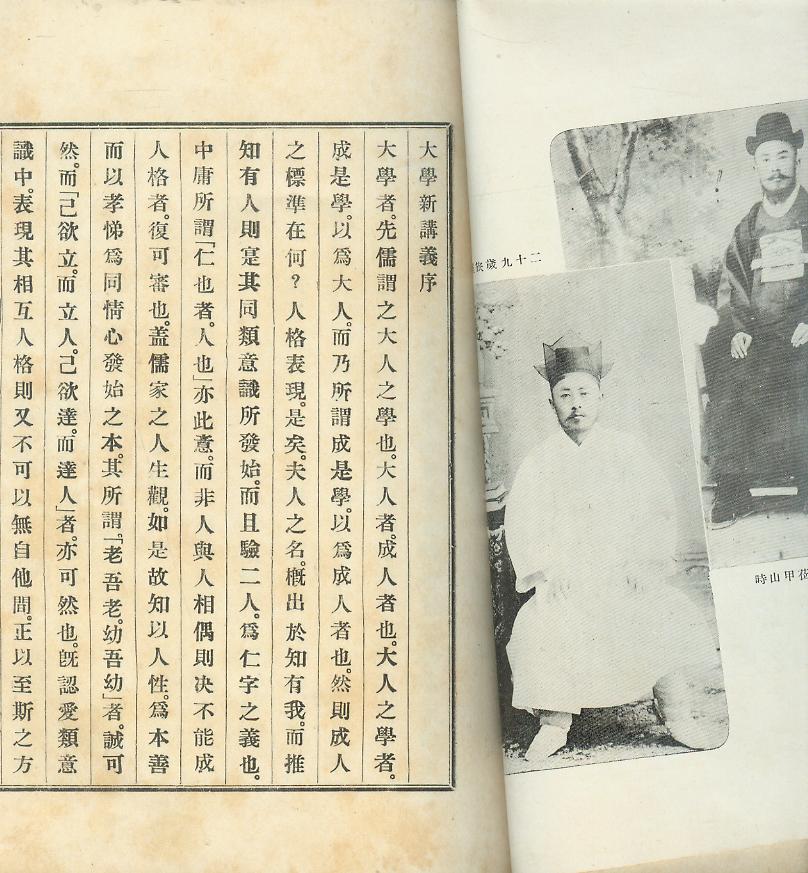 二十九歲
甲山時
大學新講義序
大學者。先儒謂之大人之學也。大人者。成人者也。大人之學者。
成是學。以爲大人。而乃所謂成是學。以爲成人者也。然則成人
之標準在何?人格表現。是矣。夫人之名。槪出於知有我。而推
知有人則寔其同類意識所發始。而且驗二人。爲仁字之義也。
中庸所謂「仁也者。人也」亦此意。而非人與人相偶則决不能成
人格者。復可審也。盖儒家之人生觀。如是故知以人性。爲本善
而以孝悌爲同情心發始之本。其所謂。「老吾老。幼吾幼」者。誠可
然。而「己欲立。而立人。己欲達。而達人」者。亦可然也。旣認愛類意
識中。表現其相互人格則又不可以無自他間。正以至斯之方